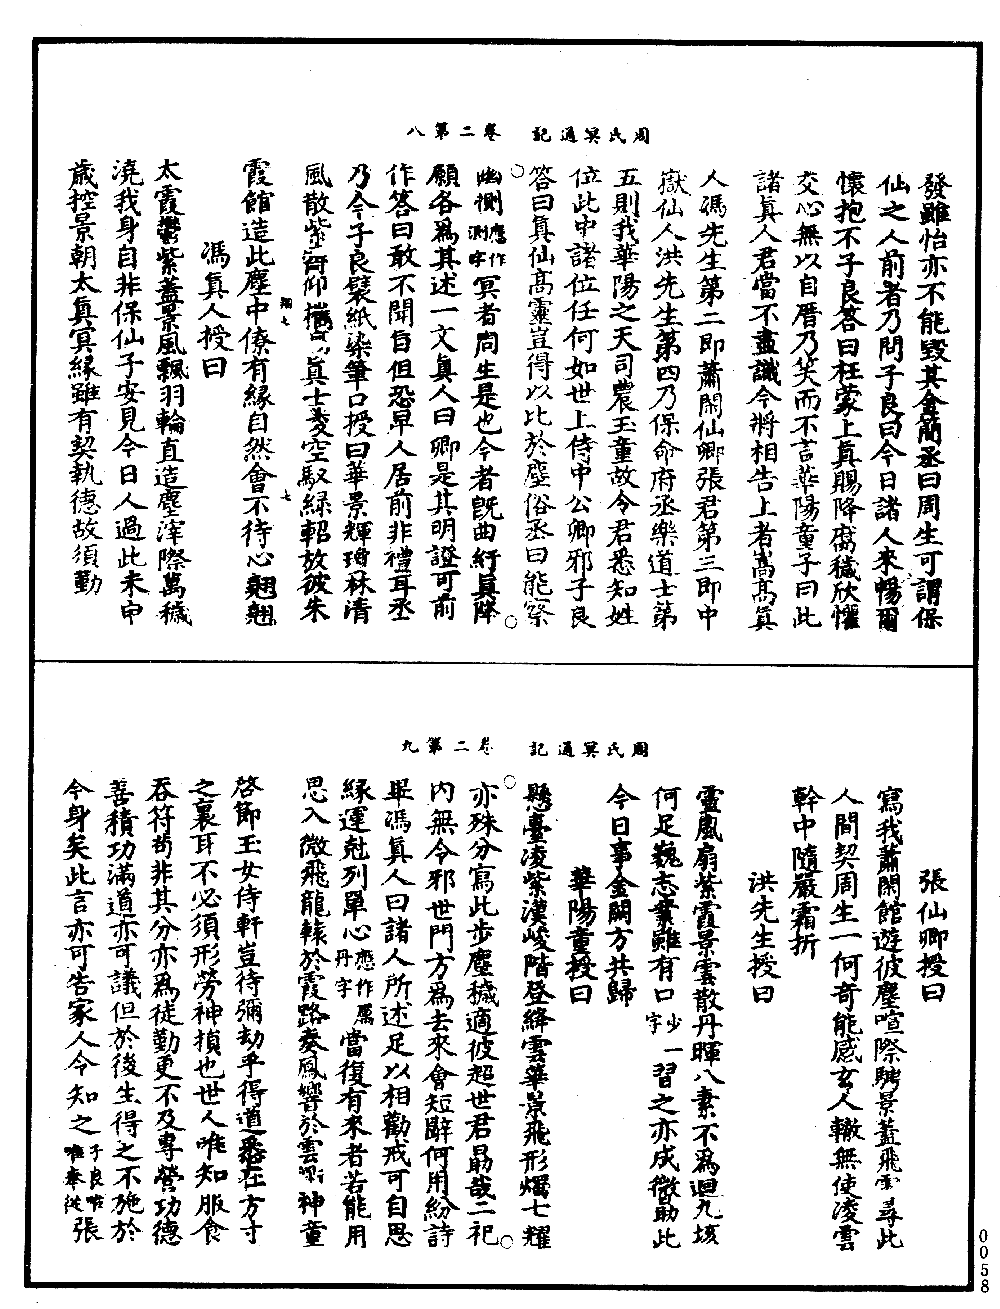 周氏冥通記　卷二第八
發雖怡亦不能毀其金簡丞曰周生可謂保
仙之人前者乃問子良曰今日諸人來暢爾
懷抱不子良答曰枉蒙上真賜降腐穢欣懼
交心無以自厝乃笑而不言華陽童子曰此
諸真人君當不盡識今將相告上者嵩高真
人馮先生第二即蕭閑仙卿張君第三即中
嶽仙人洪先生第四乃保命府丞樂道士第
五則我華陽之天司農玉童故令君悉知姓
位此中諸位任何如世上侍中公卿邪子良
答曰真仙高靈豈得以比於塵俗丞曰能察
幽惻應作測字冥者周生是也今者旣曲紆眞降
願各爲其述一文眞人曰卿是其明證可前
作答曰敢不聞旨但恐卑人居前非禮耳丞
乃令子良襞紙染筆口授曰華景輝瓊林清
風散紫霄仰攜眞士淩空馭綠軺放彼朱
霞館造此塵中僚有緣自然會不待心翹翹
馮真人授曰
太霞鬱紫蓋景風飄羽輪直造塵滓際萬穢
澆我身自非保仙子安見今日人過此未申
歲控景朝太真冥緣雖有契執德故須勤
周氏冥通記　卷二第九
張仙卿授曰
寫我蕭閑館遊彼塵喧際騁景蓋飛雲尋此
人間契周生一何奇能感玄人轍無使凌雲
幹中隨嚴霜折
洪先生授曰
靈風扇紫霞景雲散丹暉八素不爲迴九垓
何足巍志業雖有口少一字習之亦成微勗此
今日事金闕方共歸
華陽童授曰
懸臺凌紫漢峻階登絳雲華景飛形燭七耀
亦殊分寫此步塵穢適彼超世君勗哉二祀
內無令邪世門方爲去來會短辭何用紛詩
畢馮真人曰諸人所述足以相勸戒可自思
緣運剋列單心應作丹字屬當復有來者若能用
思入微飛龍轅於霞路奏鳳響於雲衢神童
啓節玉女侍軒豈待彌劫乎得道悉在方寸
之裏耳不必須形勞神損也世人唯知服食
吞符苟非其分亦爲徒勤更不及專營功德
善積功滿道亦可議但於後生得之不施於
今身矣此言亦可告家人令知之子良唯唯奉從張
0058